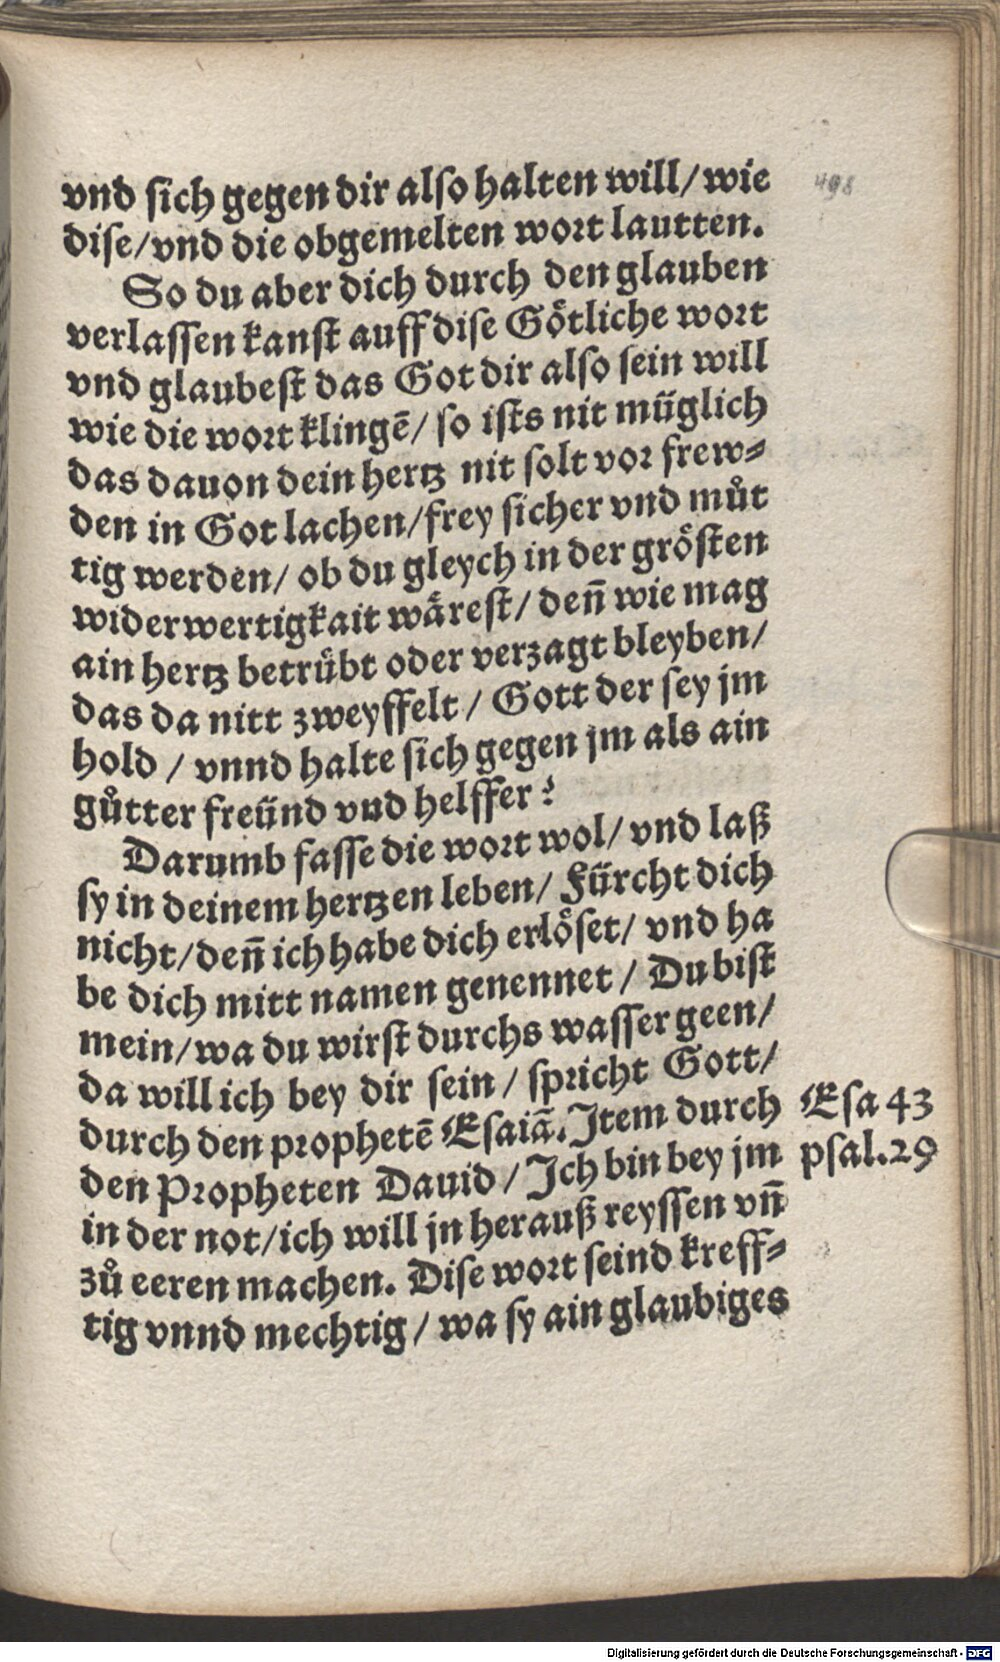 vnd sich gegen dir also halten will/ wie
498
dise/ vnd die obgemelten wort lautten.
So du aber dich durch den glauben
verlassen kanst auff dise Göttliche wort
vnd glaubest das Got dir also sein will
wie die wort klingē/ so ists nit müglich
das dauon dein hertz nit solt vor frew⸗
den in Got lachen/ frey sicher vnd můt
tig werden/ ob du gleych in der grösten
widerwertigkait wärest/ deñ wie mag
ain hertz betrübt oder verzagt bleyben/
das da nitt zweyffelt/ Gott der sey jm
hold/ vnnd halte sich gegen jm als ain
gůtter freünd vnd helffer?
Darumb fasse die wort wol/ vnd laß
sy in deinem hertzen leben/ Fürcht dich
nicht/ deñ ich habe dich erlöset/ vnd ha
be dich mitt namen genennet/ Du bist
mein/ wa du wirst durchs wasser geen/
da will ich bey dir sein/ spricht Gott/
durch den prophetē Esaiā. Item durch
Esa 43
den Propheten Dauid/ Ich bin bey jm
psal. 29
in der not/ ich will jn herauß reyssen vñ
zů eeren machen. Dise wort seind kreff⸗
tig vnnd mechtig/ wa sy ain glaubiges
Digitalisierung gefördert durch die Deutsche Forschungsgemeinschaft - DFG